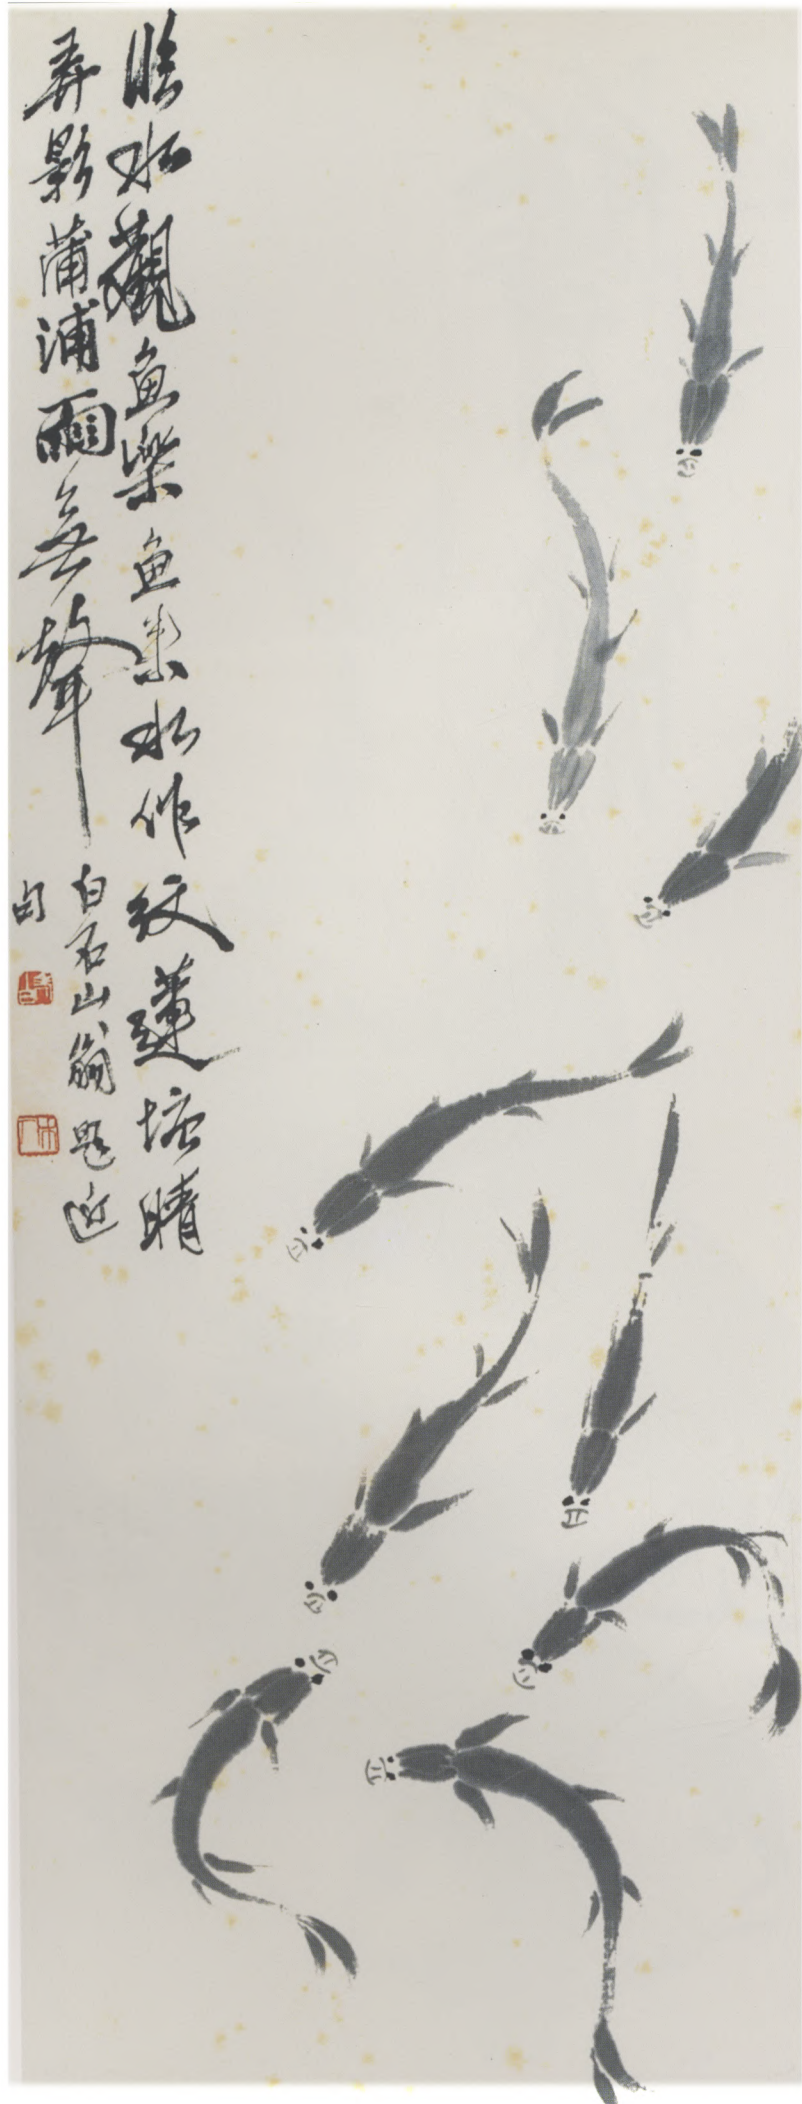 臨水觀魚樂魚樂水作紋蓮塘晴
弄影蒲浦雨無聲
白石山翁題近
句